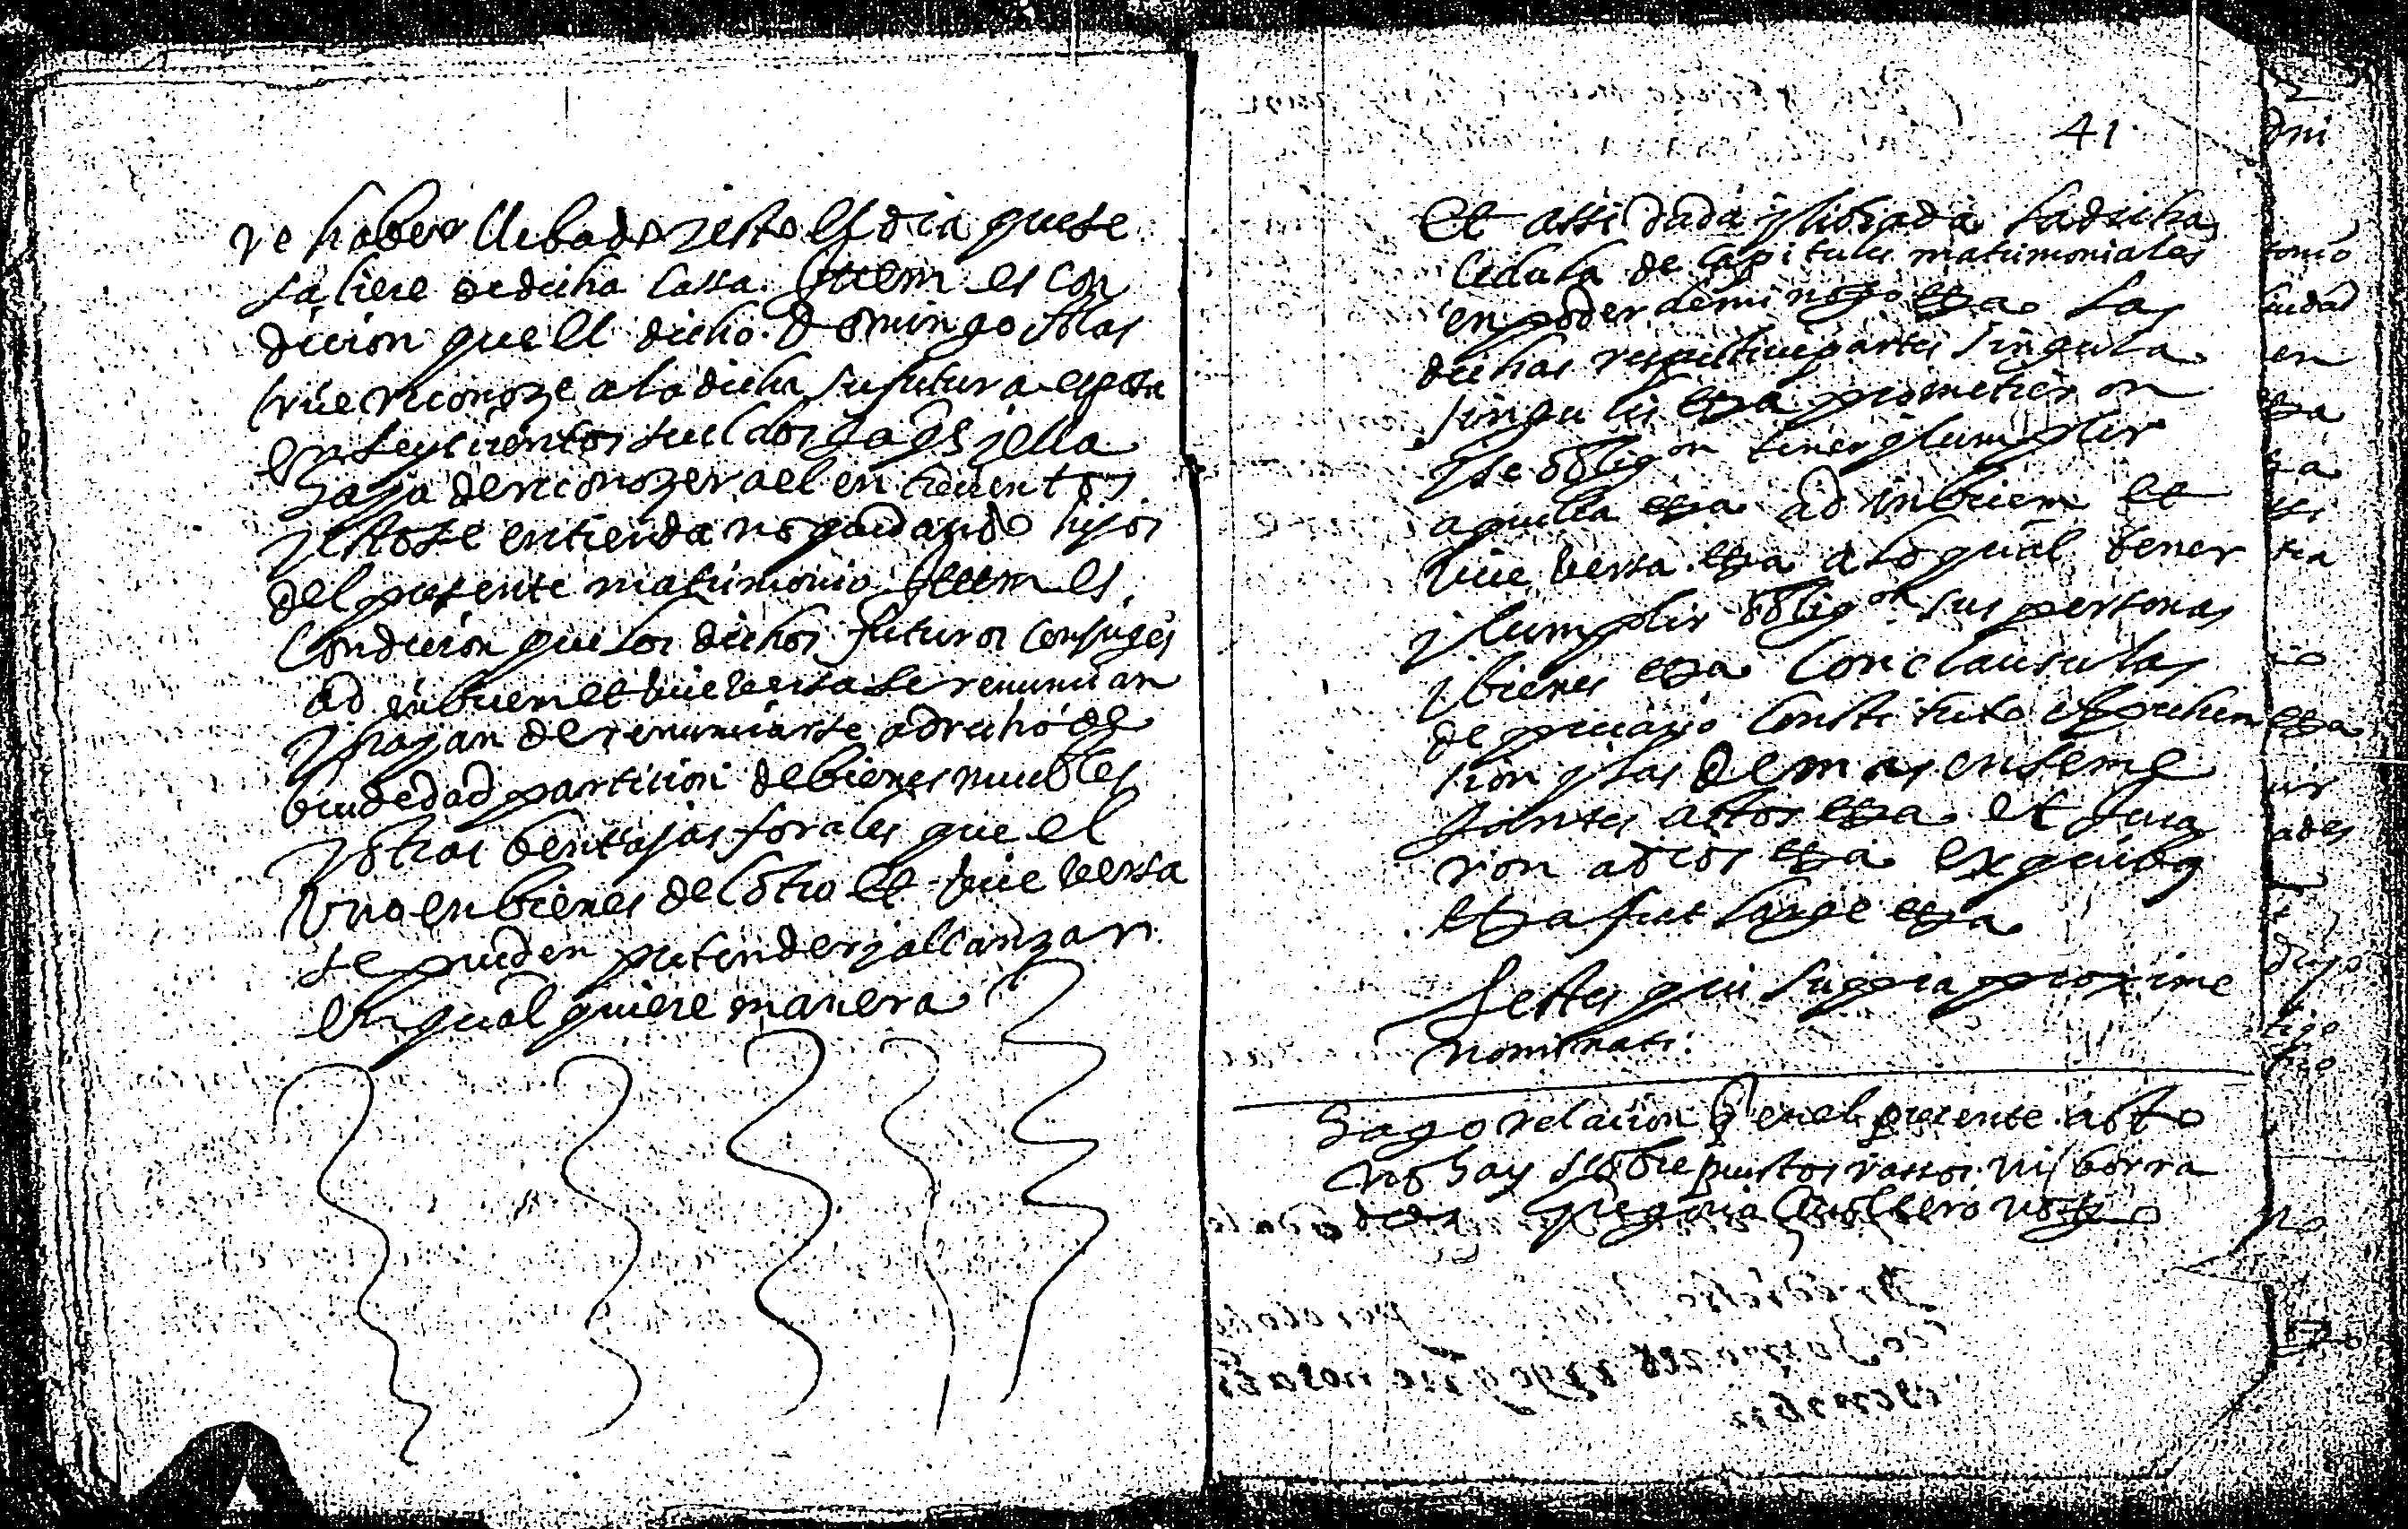 re haber llebado y esto el dia que se
saliere de dicha cassa. Ittem es con
dicion que el dicho Domingo Solas
reconoze a la dicha su futura esposa
en seyscientos sueldos jaqs y ella
haya de reconozer a el en trecientos
y esto se entienda no quedando hijos
del presente matrimonio Ittem es
condicion que los dichos futuros conjuges
ad inbicem et vice versa se renuncian
y hayan de renunciarse a drecho de
biudedad particion de bienes muebles
y otras bentajas forales que el
uno en bienes del otro et vice versa
se pueden pretender y alcanzar
en qual quiere manera
41
Et assi dada y librada la dicha
cedula de capitulos matrimoniales
en poder de mi noto etza las
dichas respectiue partes singula
singulis etza prometieron
y se obligon tener y cumplir
aquella etza ad inbicem et
vice versa etza a lo qual tener
y cumplir obligon sus personas
y bienes etza con clausulas
de precario constituto aprehen
sion y las demas en seme
jantes actos etza et jura
ron a dios etza ex quibus
etza fiat large etza
Testes qui supra proxime
nominati.
Hago relacion q en el presente acto
no hay sobrepuestos rassos ni borra
dos